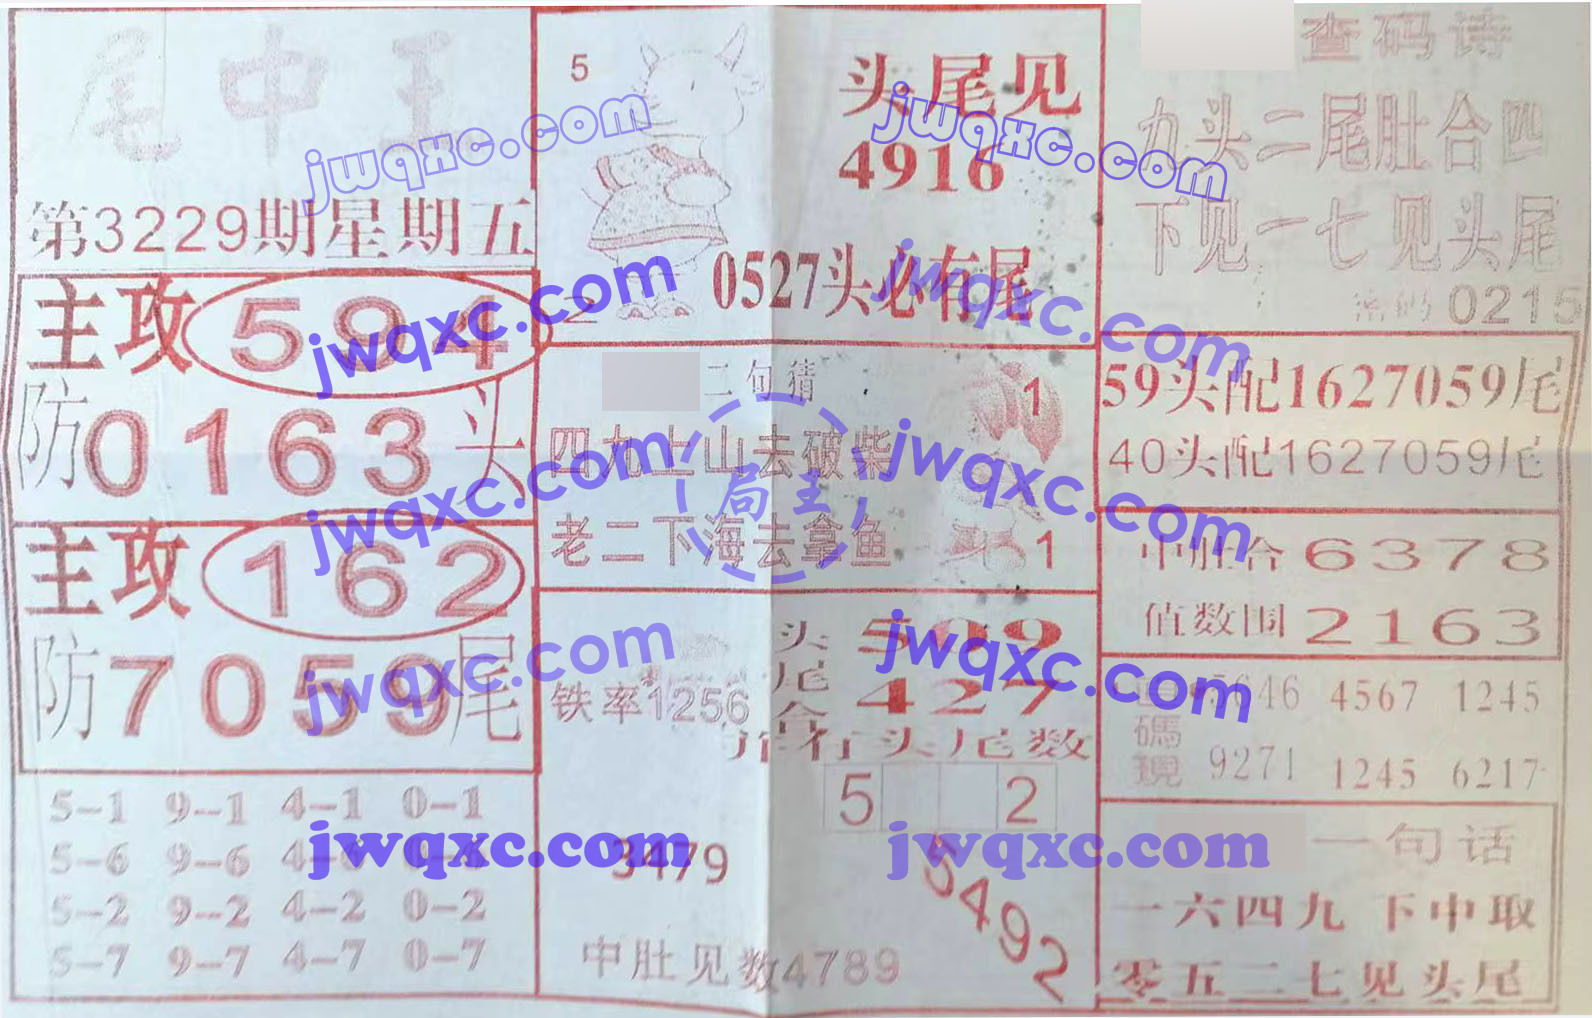 尾中王
第3229期星期五
主攻594
防0163头
主攻162
防7059尾
5-1 9-1 4-1 0-1
5-6 9-6
5-2 9-2 4-2 0-2
5-7 9-7 4-7 0-7
5
头尾见
4916
2
0527头必有尾
二句猜
1
四九上山去破柴
老二下海去拿鱼
1
铁率1256
头 509
尾 427
合
头尾数
5 2
3479
5492
中肚见数4789
查码诗
九头二尾肚合四
下见一七见头尾
密码0215
59头配1627059尾
40头配1627059尾
中肚合6378
值数围2163
5646 4567 1245
碼
現
9271 1245 6217
一句话
一六四九下中取
零五二七见头尾
jwqxc.com
jwqxc.com
jwqxc.com
jwqxc.com
jwqxc.com
jwqxc.com
jwqxc.com
jwqxc.com
jwqxc.com
jwqxc.com
局王